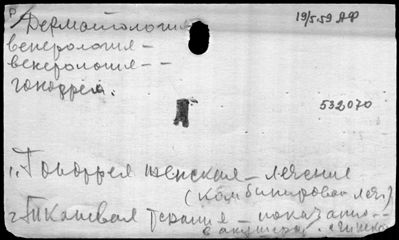 Дерматология
19/5.59 АФ
венерология –
венерология – –
гонорея.
532070
1. Гонорея женская – лечение
(комбинирован. леч)
2. Тканевая терапия – показания – –
в акушер.